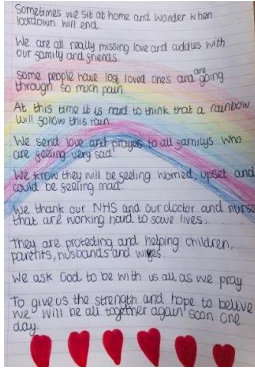 Sometimes we sit at home and wonder when
lockdown will end.
We are all really missing love and cuddles with
our family and friends.
some people have lost loved ones and are going
through so much pain.
At this time it is hard to think that a rainbow
will follow this rain.
We send love and prayers to all familys who
are feeling very sad.
We know they will be feeling worried, upset and
could be feeling mad.
We thank our NHS and our doctor and nurse
that are working hard to save lives.
They are protecting and helping children,
parents, husbands and wives.
We ask God to be with us all as we pray.
To give us the strength and hope to belive
we will be all together again soon one
day.